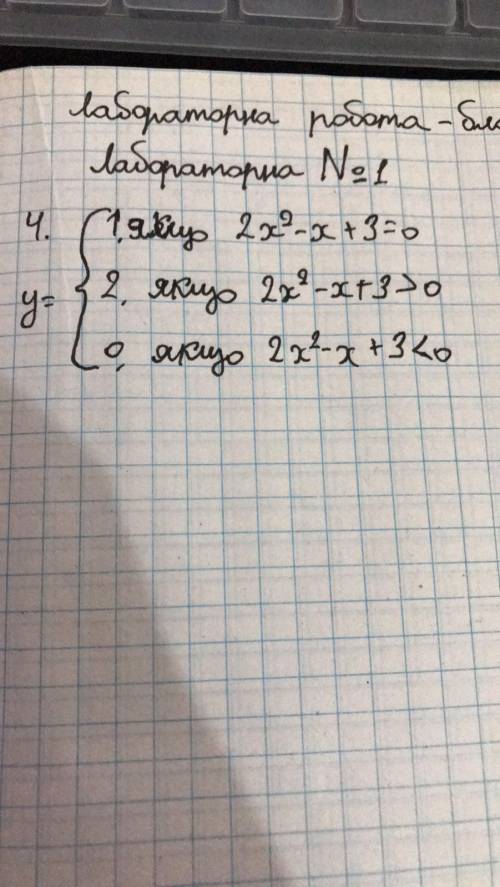 Лабораторна робота - бл
Лабораторна №1
4.
y=
1, якщо 2x²-x+3=0
2, якщо 2x²-x+3>0
0, якщо 2x²-x+3<0